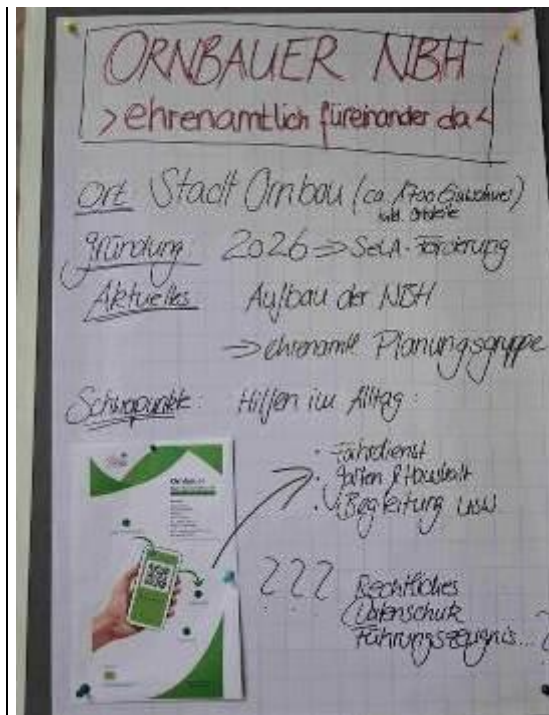 ORNBAUER NBH
>ehrenamtlich füreinander da<
Ort Stadt Ornbau (ca. 1700 Einwohner)
inkl. Ortsteile
Gründung: 2026 => SeLA-Förderung
Aktuelles Aufbau der NBH
=> ehrenamtl Planungsgruppe
Schwerpunkte: Hilfen im Alltag:
· Fahrdienst
· Garten & Haushalt
· Begleitung usw
??? Rechtliches
Datenschutz
Führungszeugnis...